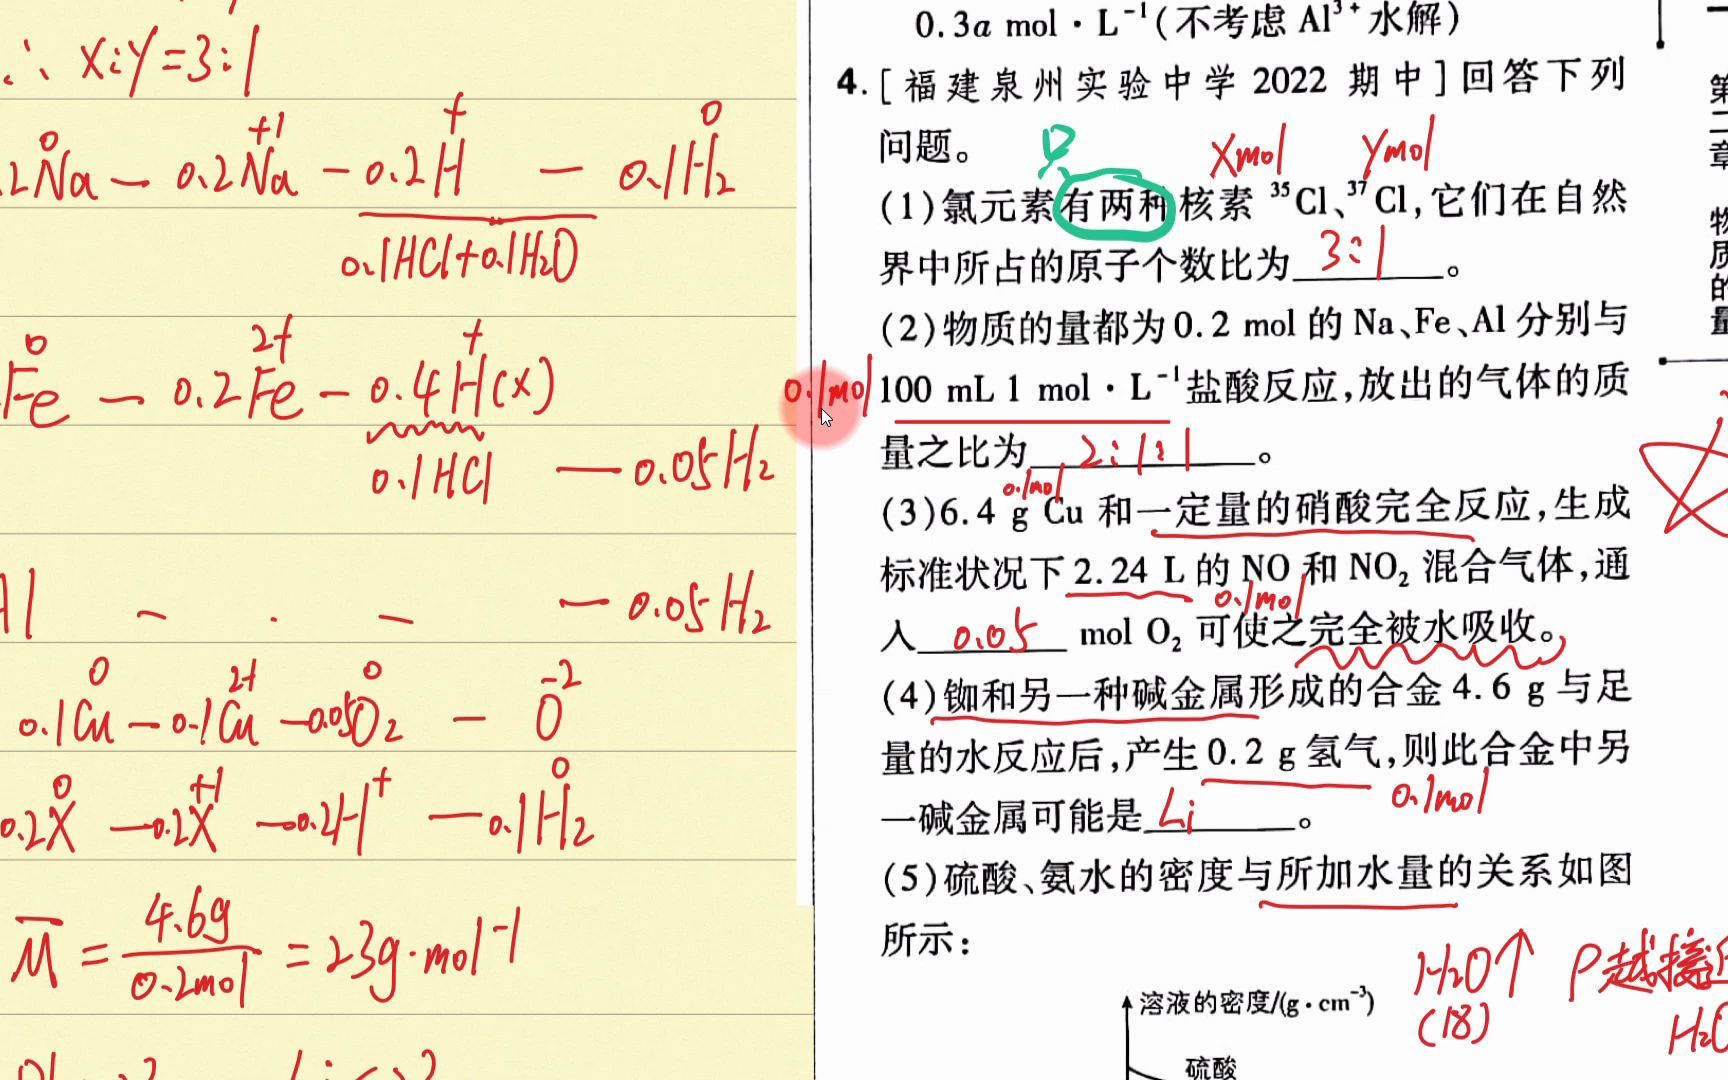 ∴ X:Y=3:1
0 +1 + 0
.2Na — 0.2Na — 0.2H — 0.1H₂
0.1HCl+0.1H₂O
0 2+ +
Fe — 0.2Fe — 0.4H(×)
0.1HCl — 0.05H₂
Al — · — — 0.05H₂
0 2+ 0 -2
0.1Cu — 0.1Cu — 0.05O₂ — O
0 +1 0
0.2X — 0.2X — 0.2H⁺ — 0.1H₂
M̅ = 4.6g/0.2mol = 23g·mol⁻¹
0.3a mol·L⁻¹(不考虑 Al³⁺水解)
4.[福建泉州实验中学 2022 期中]回答下列
问题。
Xmol Ymol
(1)氯元素有两种核素 ³⁵Cl、³⁷Cl,它们在自然
界中所占的原子个数比为 3:1 。
(2)物质的量都为0.2 mol 的 Na、Fe、Al 分别与
0.1mol
100 mL 1 mol·L⁻¹盐酸反应,放出的气体的质
量之比为 2:1:1 。
0.1mol
(3)6.4 g Cu 和一定量的硝酸完全反应,生成
标准状况下 2.24 L 的 NO 和 NO₂ 混合气体,通
0.1mol
入 0.05 mol O₂ 可使之完全被水吸收。
(4)铷和另一种碱金属形成的合金 4.6 g 与足
量的水反应后,产生 0.2 g 氢气,则此合金中另
0.1mol
一碱金属可能是 Li 。
(5)硫酸、氨水的密度与所加水量的关系如图
所示:
H₂O↑ ρ越接近
(18) H₂O
溶液的密度/(g·cm⁻³)
硫酸
第
二
章
物
质
的
量